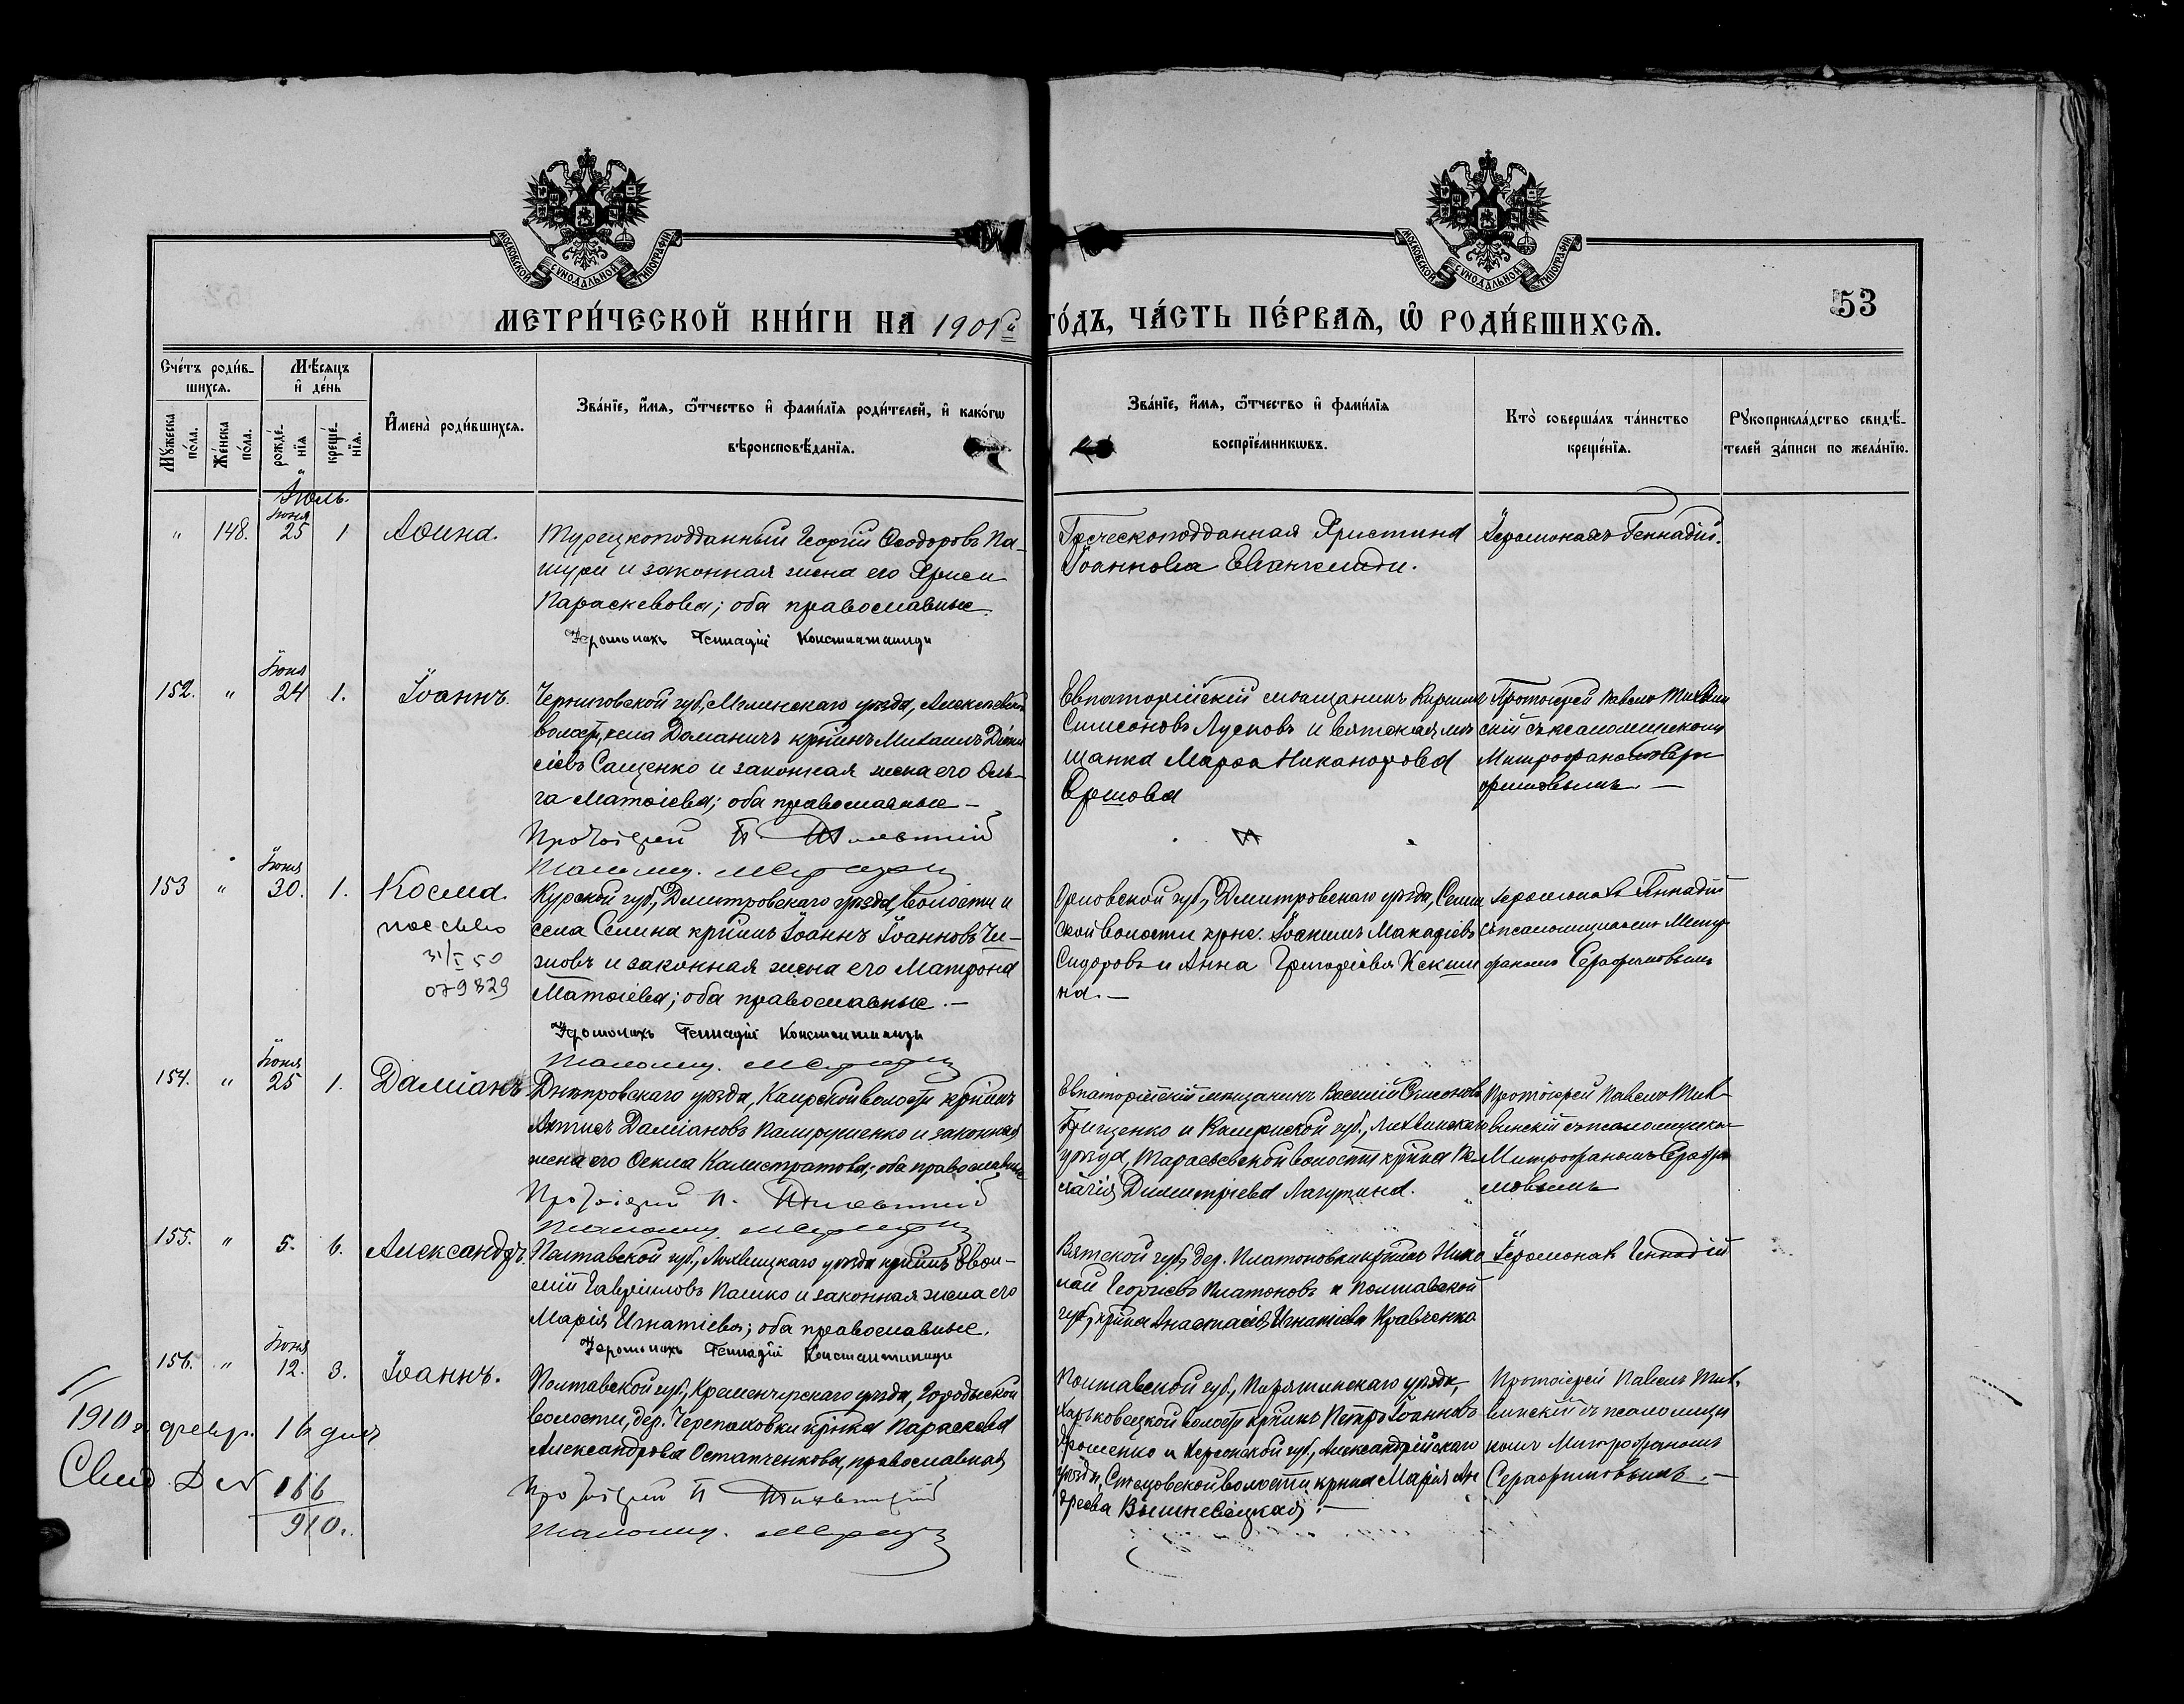 МОСКОВСКОЙ СУНОДАЛЬНОЙ ТИПОГРАФІИ
МОСКОВСКОЙ СУНОДАЛЬНОЙ ТИПОГРАФІИ
53
МЕТРИ́ЧЕСКОЙ КНИ́ГИ НА 1901й ГО́ДЪ, ЧА́СТЬ ПЕ́РВАѦ, Ѡ РОДИ́ВШИХСѦ.
Счéтъ роди́в-
шихсѧ.
Мꙋжеска
по́ла.
Же́нска
по́ла.
Мѣсѧцъ
и҆ де́нь
рожде́-
нїѧ
креще́-
нїѧ.
И҆мена̀ роди́вшихсѧ.
Зва́нїе, и҆́мѧ, ѻ҆́тчество и҆ фами́лїѧ роди́телей, и҆ како́гѡ
вѣроисповѣ́данїѧ.
Зва́нїе, и҆́мѧ, ѻ҆́тчество и҆ фами́лїѧ
воспрїе́мникѡвъ.
Кто̀ соверша́лъ та́инство
креще́нїѧ.
Рꙋкоприкла́дство свидѣ́-
телей за́писи по жела́нїю.
Іюль.
Іюня
" 148. 25 1 Аѳина.
Турецкоподданный Георгій Ѳеодоровъ Па-
шури и законная жена его Хриси
Параскевова; оба православные.
Іеромонахъ Геннадій Константиниди
Греческоподданная Христина
Іоаннова Евангелиди.
Іеромонахъ Геннадій.
Іюня
152. " 24 1. Іоаннъ.
Черниговской губ., Мглинскаго уѣзда, Алексѣевской
волости, села Доманичъ кр-нинъ Михаилъ Діони
сіевъ Сащенко и законная жена его Оль-
га Матѳіева; оба православные —
Протоіерей П. Тихвинскій
Псаломщ.
Евпаторійскій мѣщанинъ Кириллъ
Симеоновъ Лусковъ и вятская мѣ
щанка Марѳа Никанорова
Ершова
Протоіерей Павелъ Тихвин
скій съ псаломщикомъ
Митрофаномъ Сера
фимовымъ —
Іюня
153 " 30. 1. Косма.
31/I 50
079829
Курской губ., Дмитровскаго уѣзда, волости и
села Селина кр-нинъ Іоаннъ Іоанновъ Чи-
жовъ и законная жена его Матрона
Матѳіева; оба православные. —
Іеромонахъ Геннадій Константиниди
Псаломщ.
Орловской губ., Дмитровскаго уѣзда, Селин
ской волости крнс. Іоакимъ Макаріевъ
Сидоровъ и Анна Григоріева
на. —
Іеромонахъ Геннадій
съ псаломщикомъ Митр
фаномъ Серафимовымъ
Іюня
154. " 25 1. Даміанъ
Днѣпровскаго уѣзда, Каирской волости кр-нинъ
Даміановъ и законная
жена его Ѳекла Калистратова; оба православные
Протоіерей П. Тихвинскій
Псаломщ.
Евпаторійскій мѣщанинъ Василій Симеоновъ
Грищенко и Калужской губ., Лихвинскаго
уѣзда, Тарасьевской волости кр-нка Пе
лагія Димитріева Лагутина.
Протоіерей Павелъ Тих-
винскій съ псаломщикомъ
Митрофаномъ Серафи
мовымъ
155. " 5. 6. Александръ.
Полтавской губ., Лохвицкаго уѣзда кр-нинъ Евѳи-
мій Гавріиловъ Пашко и законная жена его
Марія Игнатіева; оба православные.
Іеромонахъ Геннадій Константиниди
Вятской губ., дер. Платоновки кр-нинъ Нико
лай Георгіевъ Платоновъ и Полтавской
губ., кр-нка Анастасія Игнатіева Кравченко
Іеромонахъ Геннадій
Іюня
156. " 12. 3. Іоаннъ.
Полтавской губ., Кременчугскаго уѣзда, Городиской
волости, дер. Череповки кр-нка Параскева
Александрова Остапченкова, православная
Протоіерей П. Тихвинскій
Псаломщ.
Полтавской губ., Пирятинскаго уѣзда,
Харьковецкой волости кр-нинъ Петръ Іоанновъ
Ярошенко и Херсонской губ., Александрійскаго
уѣзда, волости кр-нка Марія Ан
дреева Вишневецкая. —
Протоіерей Павелъ Тих-
винскій съ псаломщи
комъ Митрофаномъ
Серафимовымъ. —
1910 г. февр. 16 дня
Свид. № 166
910.